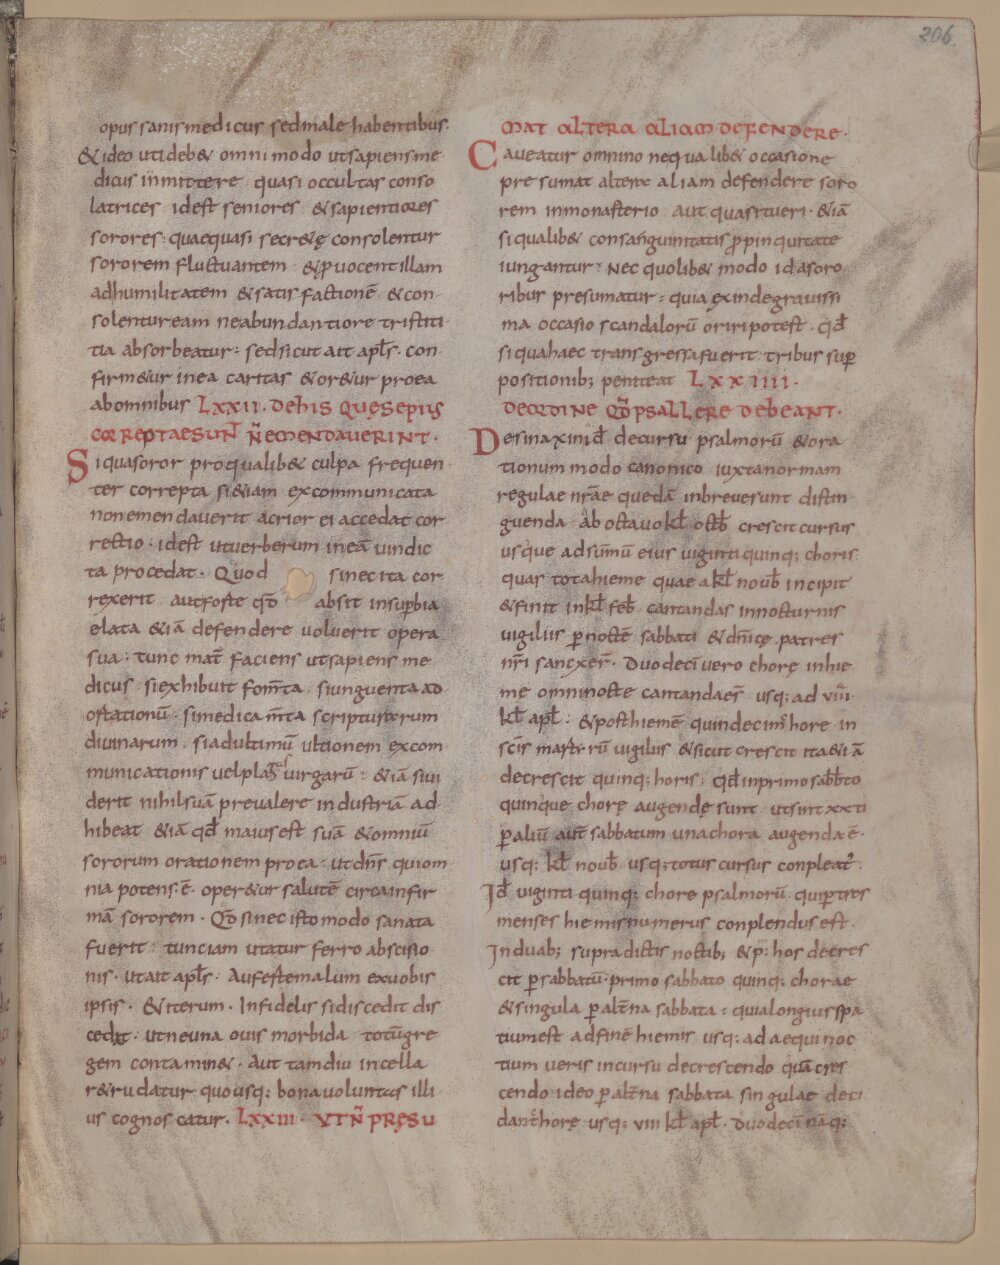 206.
opus sanis medicus sed male habentibus.
& ideo uti deb& omni modo ut sapiens me
dicus inmittere quasi occultas conso
latrices id est seniores & sapientiores
sorores. quae quasi secr&ę consolentur
sororem fluctuantem & ꝓuocent illam
ad humilitatem & satisfactionē & con
solentur eam ne abundantiore tristiti
tia absorbeatur. sed sicut ait apl̄s. con
firm&ur in ea caritas & or&ur pro ea
ab omnibus LXXII. De his quę sępius
correptae sunt̄ n̄ emendauerint.
Si qua soror pro qualib& culpa frequen
ter correpta si &iam excommunicata
non emendauerit acrior ei accedat cor
rectio. id est ut uerberum in eā uindic
ta procedat. Quod si nec ita cor
rexerit aut forte qđ absit in suꝑbia
elata &iā defendere uoluerit opera
sua. tunc mat̄ faciens ut sapiens me
dicus si exhibuit fom̄ta si unguenta ad
ortationū. si medicam̄ta scripturarum
diuinarum. si ad ultimū ultionem excom
municationis uel plagas uirgarū. &iā si ui
derit nihil suā preualere industriā ad
hibeat &iā qđ maius est suā & omniū
sororum orationem pro ea. ut dn̄s qui om
nia potens ē. oper&ur salutē circa infir
mā sororem. Qđ si nec isto modo sanata
fuerit. tunc iam utatur ferro abscisio
nis. ut ait apl̄s. Auferte malum ex uobis
ipsis. & iterum. Infidelis si discedit dis
cedat. ut ne una ouis morbida totū gre
gem contamin&. Aut tamdiu in cella
r&rudatur quousq; bona uoluntas illi
us cognoscatur. LXXIII. UT N̄ PRĘSU
MAT ALTERA ALIAM DEFENDERE.
Caueatur omnino ne qualib& occasione
presumat altera aliam defendere soro
rem in monasterio aut quasi tueri. &iā
si qualib& consanguinitatis ꝓpinquitate
iungantur. Nec quolib& modo id a soro
ribus presumatur. quia exinde grauissi
ma occasio scandalorū oriri potest. qđ
si qua haec transgressa fuerit. tribus suꝑ
positionib; peniteat LXXIIII.
DE ORDINE QUO PSALLERE DEBEANT.
De sinaxi id̄ decursu psalmorū & ora
tionum modo canonico iuxta normam
regulae nr̄ae quedā in breue sunt distin
guenda ab octauo kl̄ octb̄ crescit cursus
usque ad sūmū eius uiginti quinq; choris
quas tota hieme quae a kl̄ noub̄ incipit
& finit in kl̄ feb̄ cantandas in nocturnis
uigiliis ꝑ noctē sabbati & dn̄icę patres
nr̄i sanxer̄. Duodeci uero chorę in hie
me omni nocte cantandae s̄ usq; ad uiii
kl̄ apl̄. & post hiemē quindecim hore in
sc̄is martyrū uigiliis & sicut crescit ita &iā
decrescit quinq; horis. qđ in primo sabb̄to
quinque chorę augendę sunt ut sint xxti
ꝑ aliū aut̄ sabbatum una chora augenda ē.
usq; kl̄ noub̄ usq; totus cursus conpleat̄.
Id̄ uiginti quinq; chorę psalmorū. qui ꝑ tres
menses hiemis numerus conplendus est.
In duab; supradictis noctib; & p̄ hos decres
cit ꝑ sabbatū. primo sabbato quinq; chorae
& singula ꝑ alt̄na sabbata. quia longius spa
tium est ad finē hiemis usq; ad aequinoc
tium ueris in cursu decrescendo quā cres
cendo ideo ꝑ alt̄na sabbata singulae deci
dant horę usq; uiii kl̄ apl̄. Duodeci nāq;